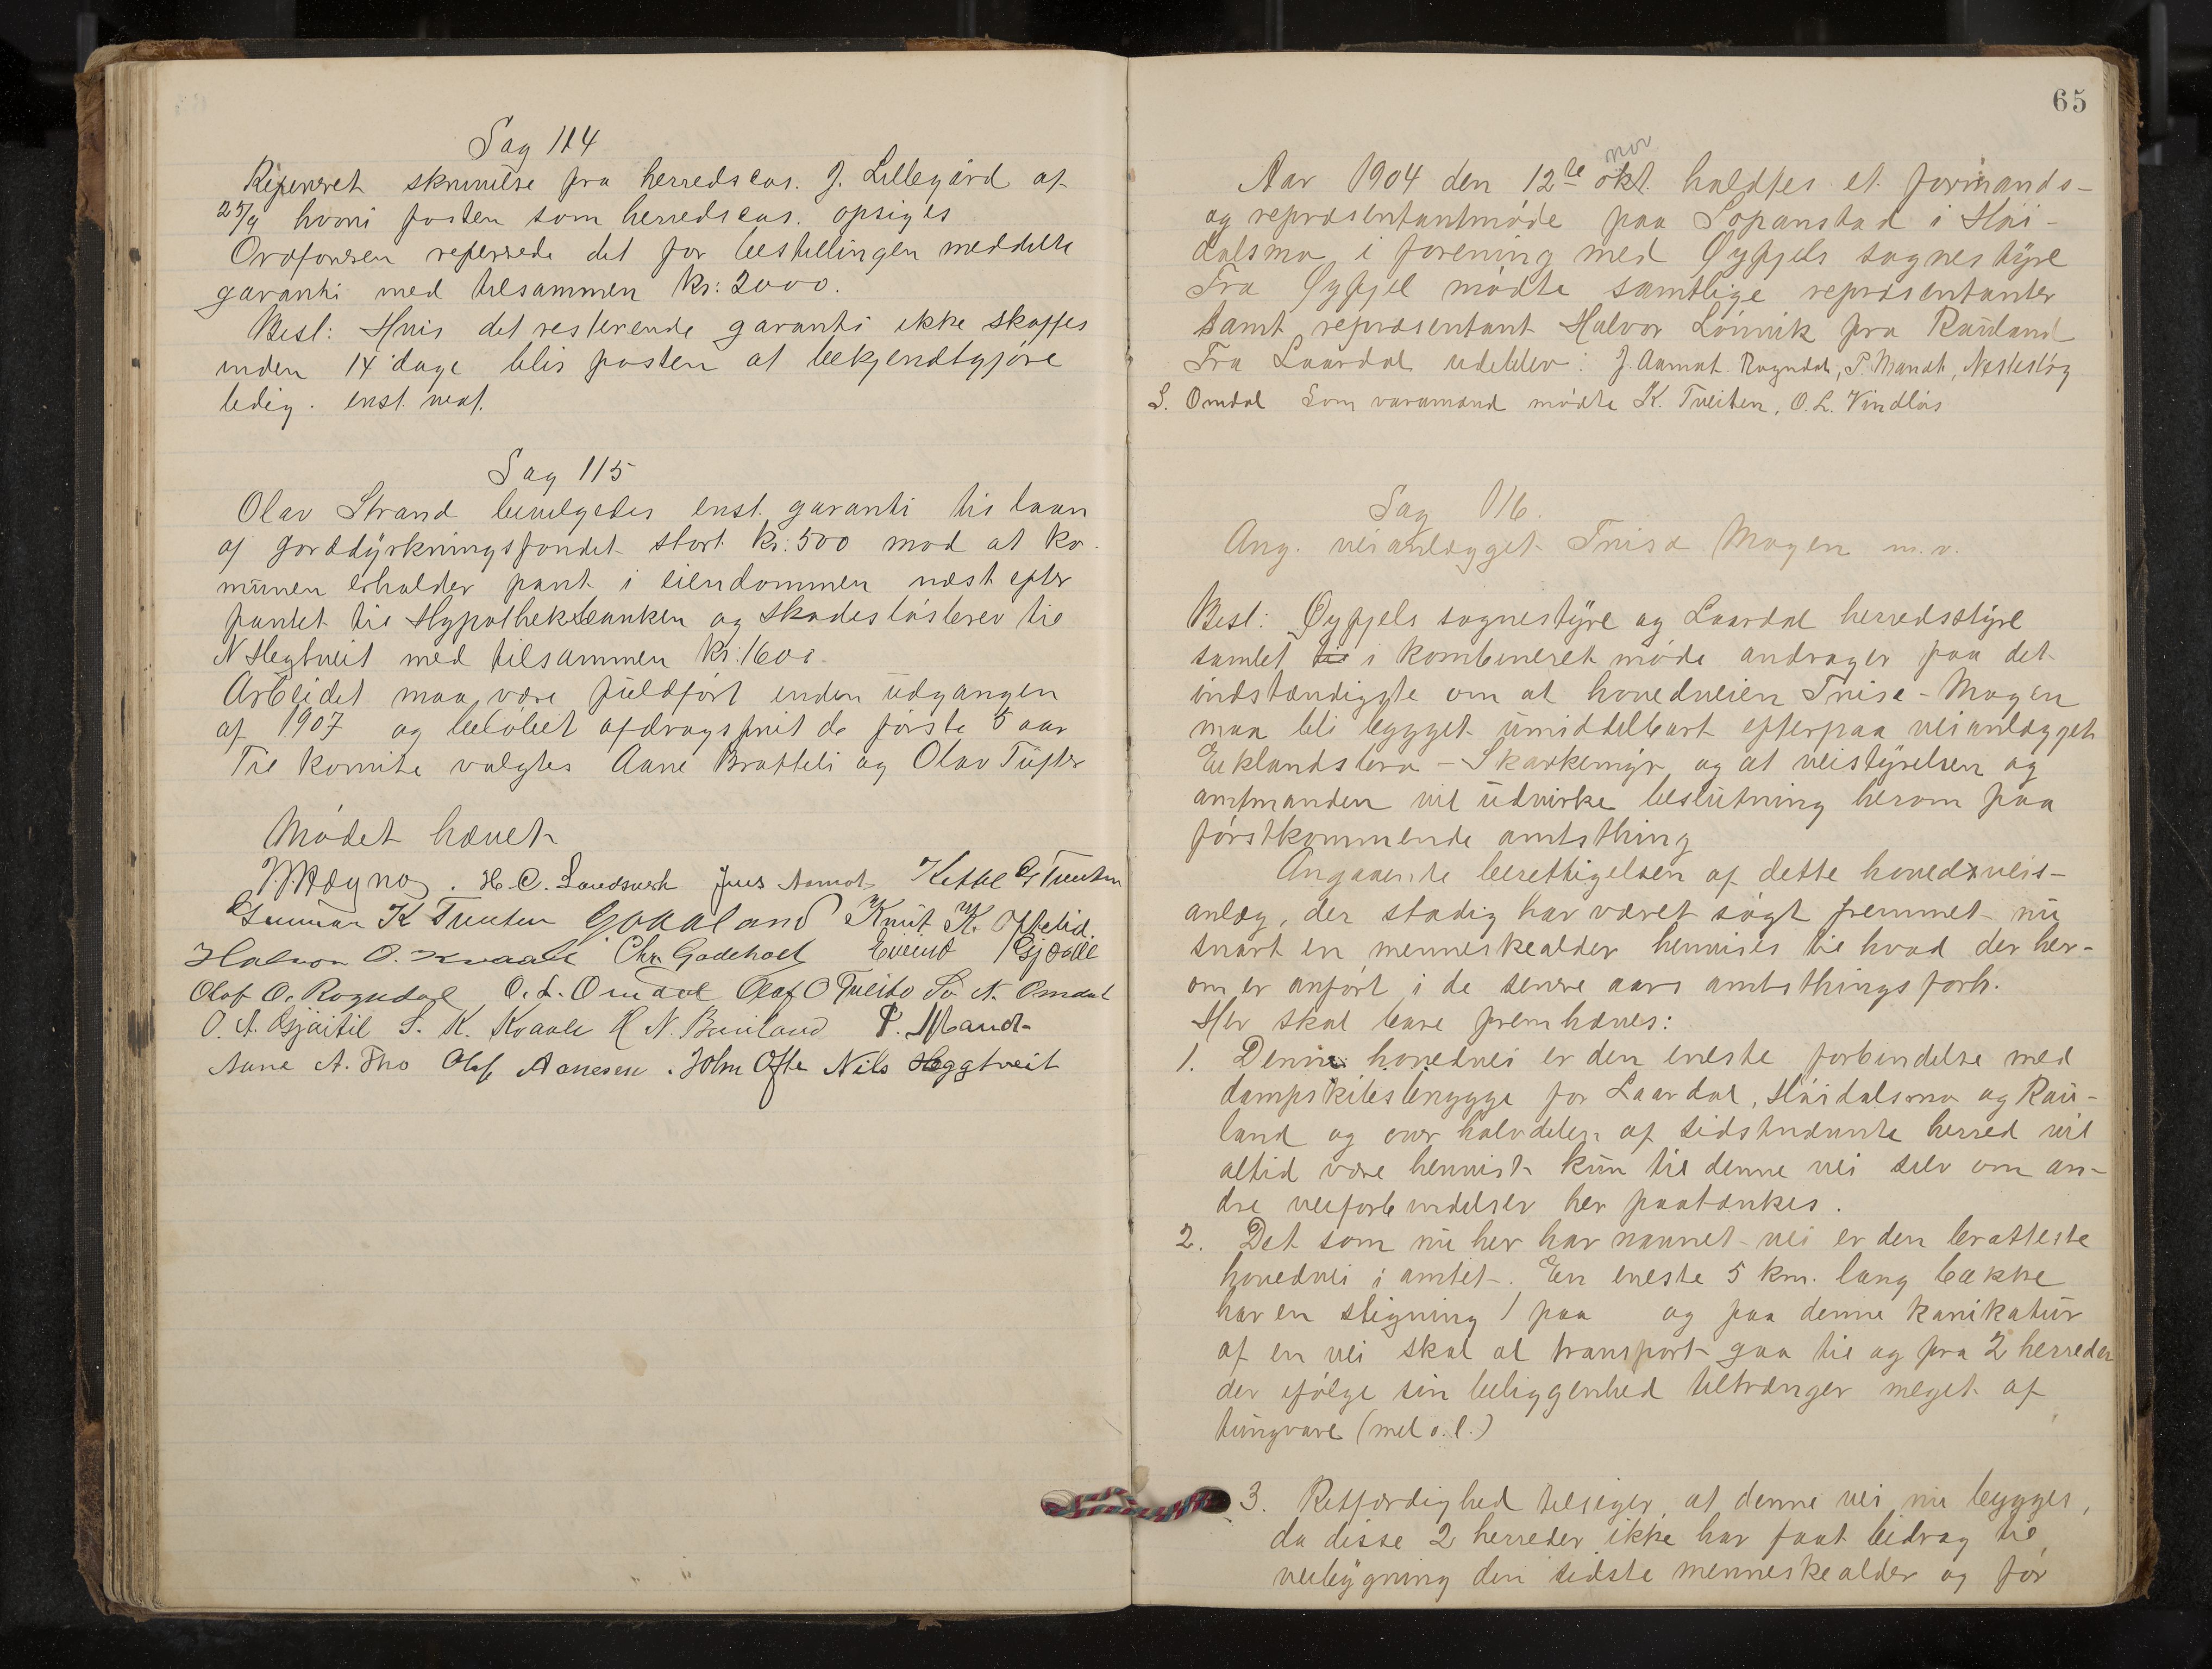 Sag 114
Refereret skrivelse fra herredscas. J. Lillegård af
25/9 hvori posten som herredscas. opsiges
Ordføreren refererede det for bestillingen meddelte
garanti med tilsammen kr: 2000.
Besl: Hvis det resterende garanti ikke skaffes
inden 14 dage blir posten at bekjendtgjøre
ledig. enst. vedt.
Sag 115
Olav Strand bevilgedes enst. garanti til laan
af jorddyrkningsfondet stort kr: 500 mod at ko-
munen erholder pant i eiendommen næst efter
pantet til Hypothekbanken og skadesløsbrev til
N Hegtveit med tilsammen kr: 1600
Arbeidet maa være fuldført inden udgangen
af 1907 og beløbet afdragsfrit de første 5 aar
Til komite valgtes Aane Bratteli og Olav Tufter
Mødet hævet
H. C. Landsverk Jens Aamot Kittel G Tveiten
Gunnar K Tveiten G Haaland Knut K. Oftelid.
Halvor O. Kvaale Chr. Godeholt Eivind Gjøalle
Olaf O. Rogndal O. L. Omdal Olaf O Tveito Sv N. Omdal
O. A. Gjøitil S. K. Kvaale H N. Bauland P. Mandt
Aane A. Tho Olaf Aanesen. John Ofte Nils Heggtveit
65
nov
Aar 1904 den 12te okt. holdtes et formands-
og repræsentantmøde paa Sopanstad i Høi-
dalsmo i forening med Øyfjels sognestyre
Fra Øyfjel mødte samtlige repræsentanter
samt repræsentant Halvor Lönnvik fra Rauland
Fra Laardal udeblev: J. Aamot Rogndal, P. Mandt, Nesleslög
S. Omdal Som varamænd mødte K. Tveiten, O. L. Vindlås
Sag 116.
Ang. veianlægget Triset Mogen m.v.
Besl: Øyfjels sognestyre og Laardal herredsstyre
samlet til i kombineret møde andrager paa det
indstændigste om at hovedveien Trise-Mogen
maa bli bygget umiddelbart efterpaa veianlægget
Eiklandsbro - Skarkemyr og at veistyrelsen og
amtmanden vil udvirke beslutning herom paa
førstkommende amtsthing
Angaaende berettigelsen af dette hovedveis-
anlæg, der stadig har været søgt fremmet nu
snart en menneskealder henvises til hvad der her-
om er anført i de senere aars amtsthingsforh.
Her skal bare fremhæves:
1. Denne hovedvei er den eneste forbindelse med
dampskibsbrygge for Laardal, Høidalsmo og Rau-
land og over halvdelen af sidstnævnte herred vil
altid være henvist kun til denne vei selv om an-
dre veiforbindelser her paatænkes.
2. Det som nu her har navnet vei er den bratteste
hovedvei i amtet. En eneste 5 km. lang bakke
har en stigning 1 paa og paa denne karikatur
af en vei skal al transport gaa til og fra 2 herreder
der ifølge sin beliggenhed tiltrænger meget af
tungvare (mel o.l.)
3. Retfærdighed tilsiger, at denne vei nu bygges,
da disse 2 herreder ikke har faat bidrag til
veibygning den sidste menneskealder og før